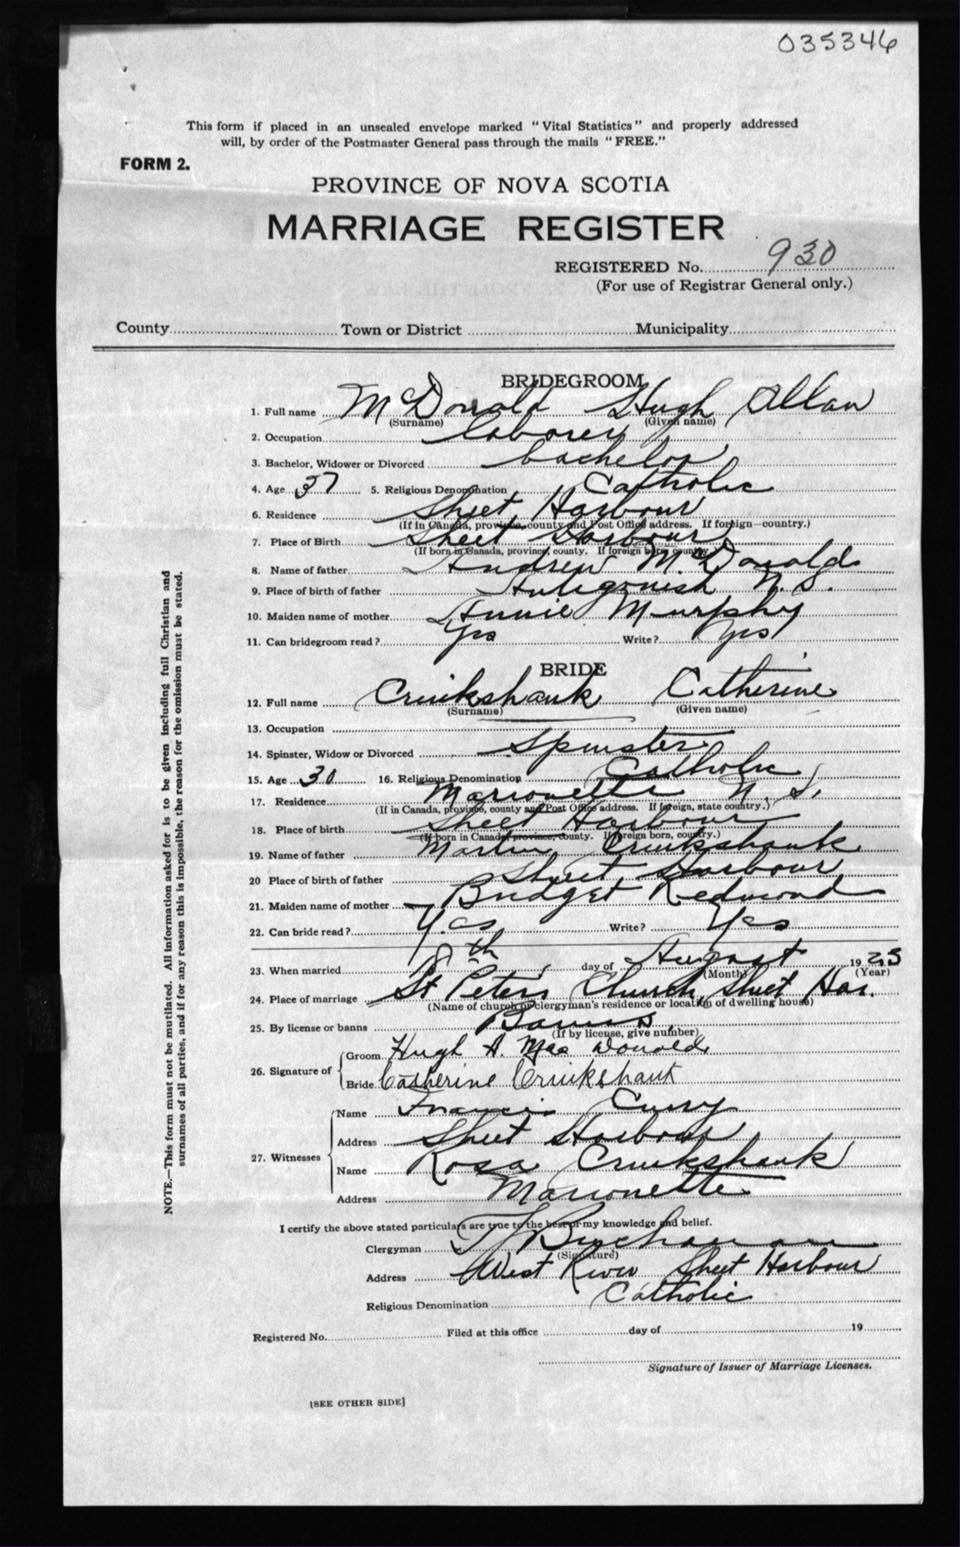 035346
This form if placed in an unsealed envelope marked "Vital Statistics" and properly addressed
will, by order of the Postmaster General pass through the mails "FREE."
FORM 2.
PROVINCE OF NOVA SCOTIA
MARRIAGE REGISTER
REGISTERED No. 930
(For use of Registrar General only.)
County Town or District Municipality
BRIDEGROOM
1. Full name McDonald Hugh Allan
(Surname) (Given name)
2. Occupation laborer
3. Bachelor, Widower or Divorced bachelor
4. Age 37 5. Religious Denomination Catholic
6. Residence Sheet Harbour
(If in Canada, province, county and Post Office address. If foreign—country.)
7. Place of Birth Sheet Harbour
(If born in Canada, province, county. If foreign born country.)
8. Name of father Andrew McDonald
9. Place of birth of father Antigonish N.S.
10. Maiden name of mother Annie Murphy
11. Can bridegroom read? Yes Write? Yes
BRIDE
12. Full name Cruikshank Catherine
(Surname) (Given name)
13. Occupation
14. Spinster, Widow or Divorced Spinster
15. Age 30 16. Religious Denomination Catholic
17. Residence Marionette N.S.
(If in Canada, province, county and Post Office address. If foreign, state country.)
18. Place of birth Sheet Harbour
(If born in Canada, province, county. If foreign born, country.)
19. Name of father Martin Cruikshank
20 Place of birth of father Sheet Harbour
21. Maiden name of mother Bridget Redmond
22. Can bride read? Yes Write? Yes
23. When married day of August 1925
(Month) (Year)
24. Place of marriage St Peters Church, Sheet Har.
(Name of church or clergyman's residence or location of dwelling house)
25. By license or banns Banns
(If by license, give number)
26. Signature of Groom Hugh A. MacDonald
Bride Catherine Cruikshank
27. Witnesses Name Francis Curry
Address Sheet Harbour
Name Rosa Cruikshank
Address Marionette
I certify the above stated particulars are true to the best of my knowledge and belief.
Clergyman Buchanan
(Signature)
Address West River Sheet Harbour
Religious Denomination Catholic
Registered No. Filed at this office day of 19
Signature of Issuer of Marriage Licenses.
[SEE OTHER SIDE]
NOTE.—This form must not be mutilated. All information asked for is to be given including full Christian and
surnames of all parties, and if for any reason this is impossible, the reason for the omission must be stated.